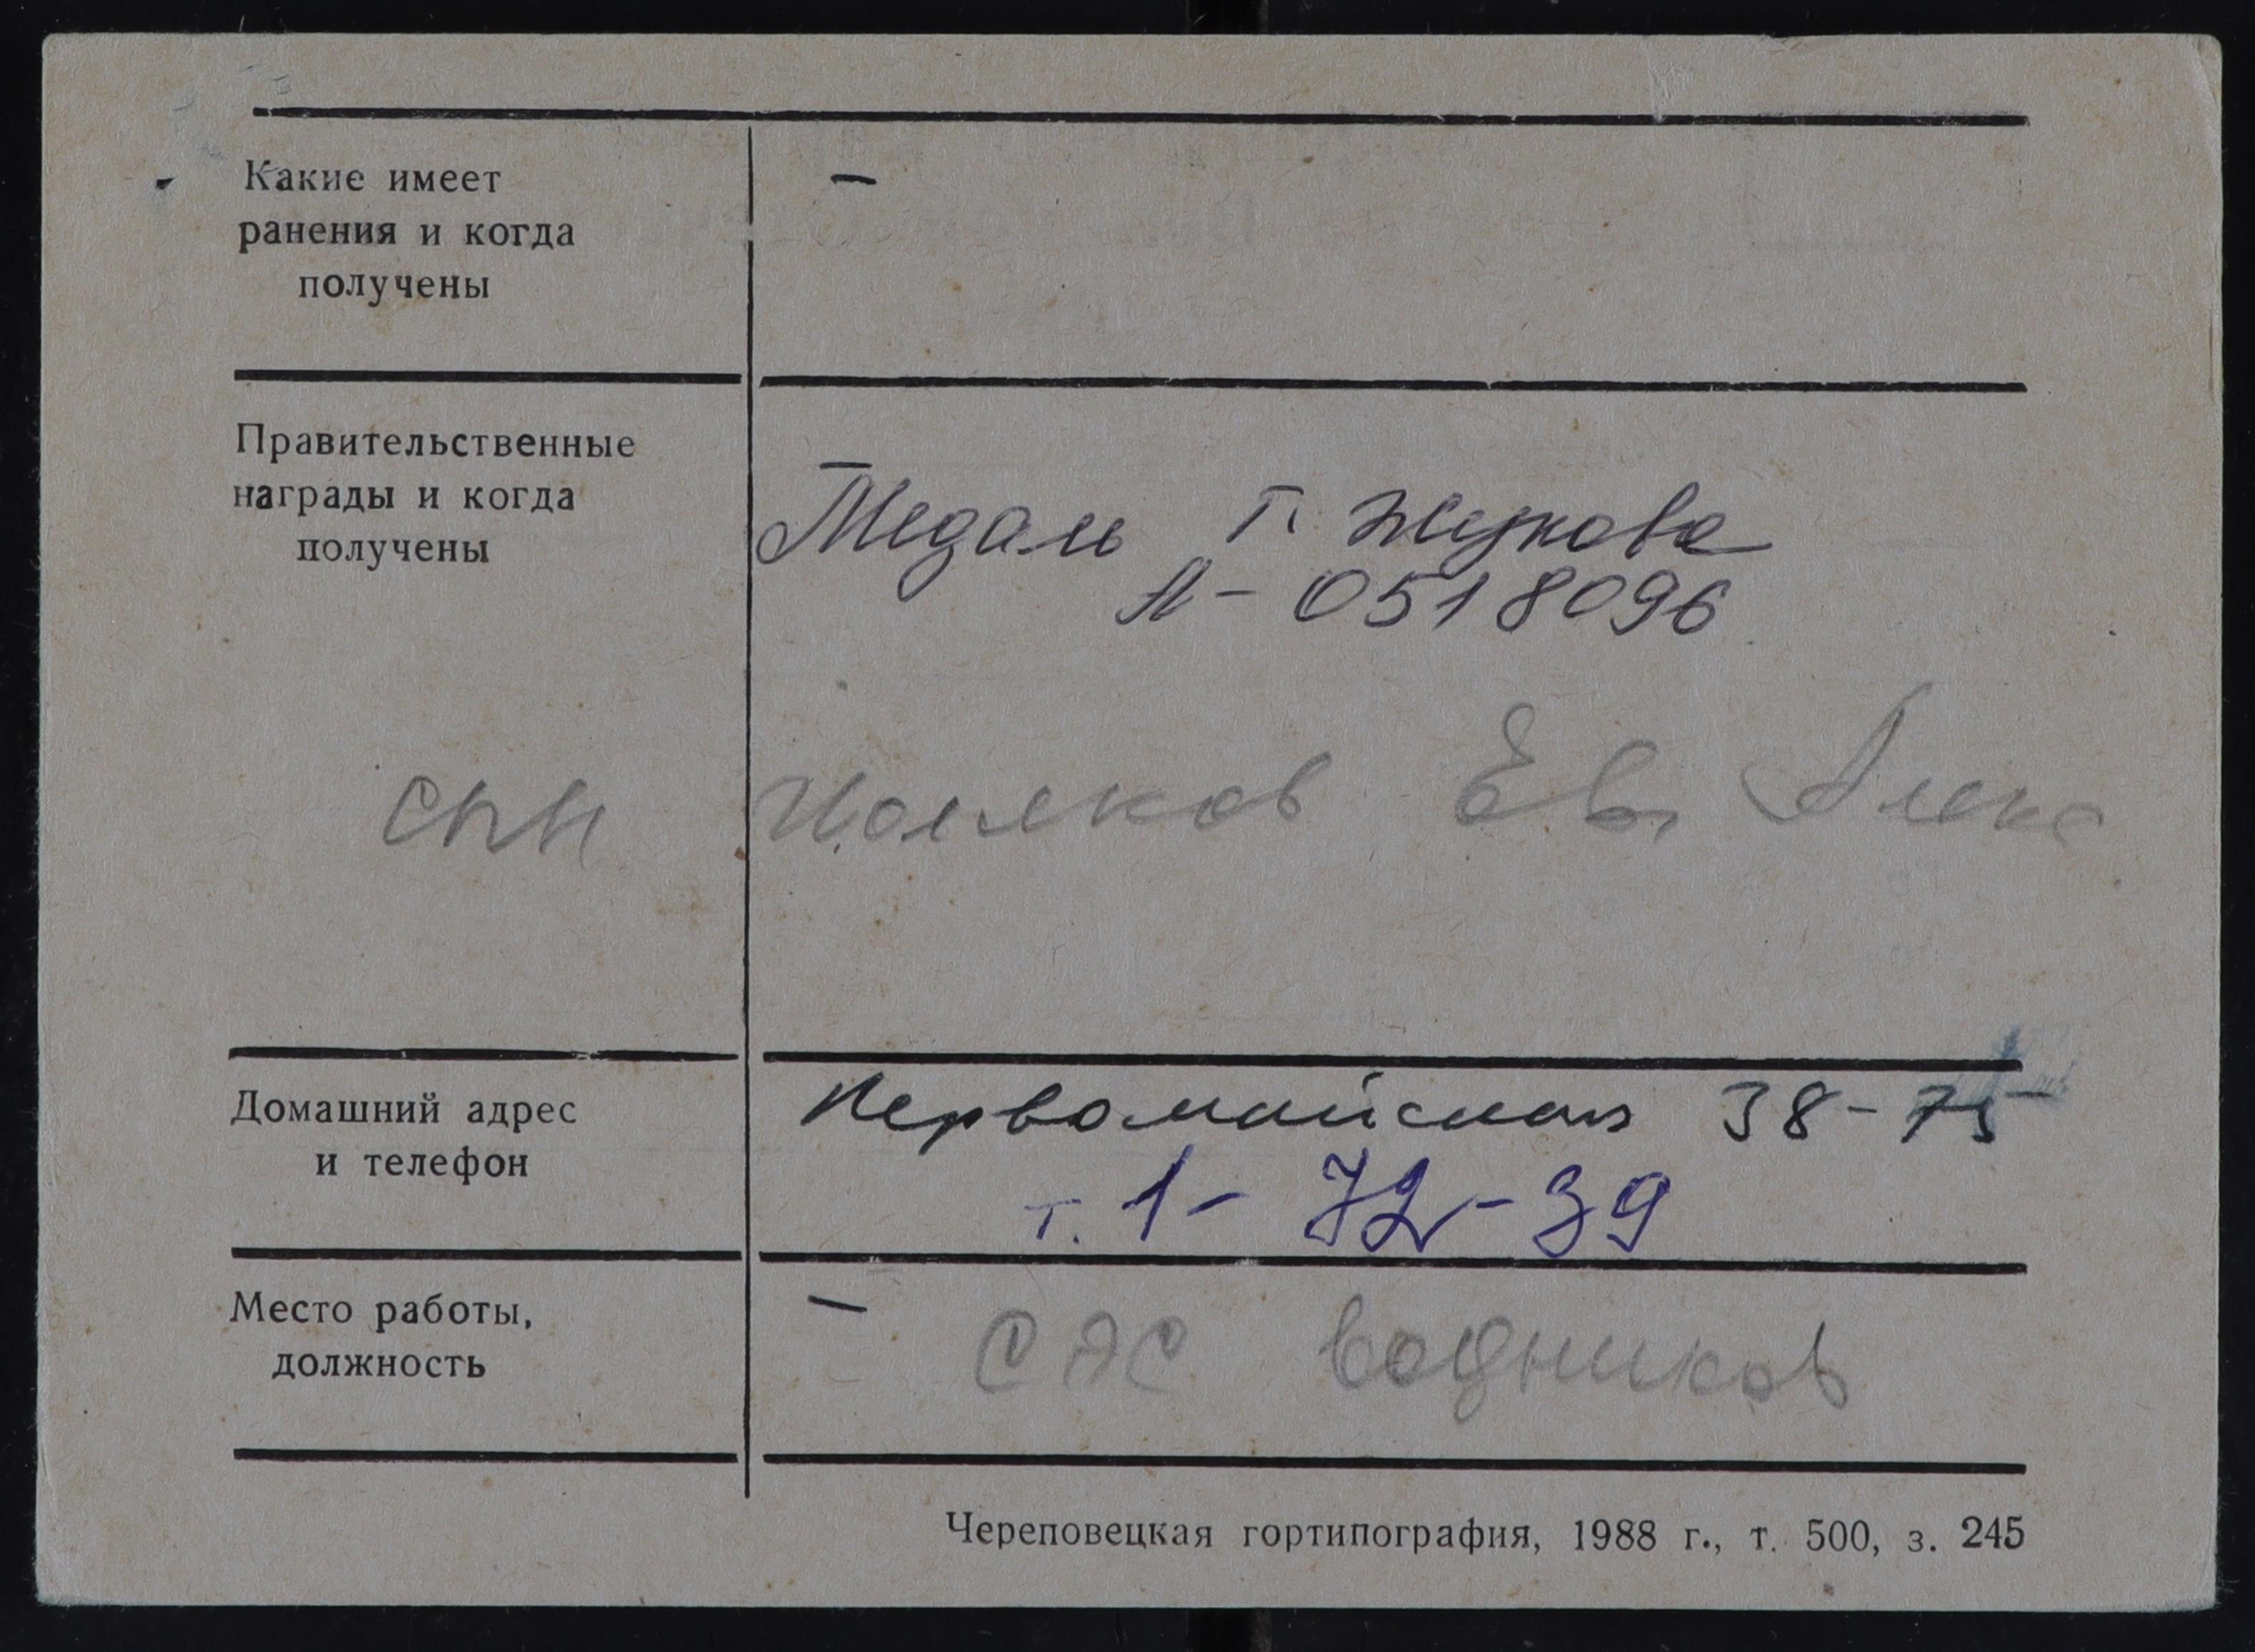 Какие имеет
ранения и когда
получены
–
Правительственные
награды и когда
получены
Медаль Г. Жукова
А - 0518096
сын Ев. Алекс
Домашний адрес
и телефон
Первомайская 38-75
т. 1-72-39
Место работы,
должность
– водников
Череповецкая гортипография, 1988 г., т. 500, з. 245